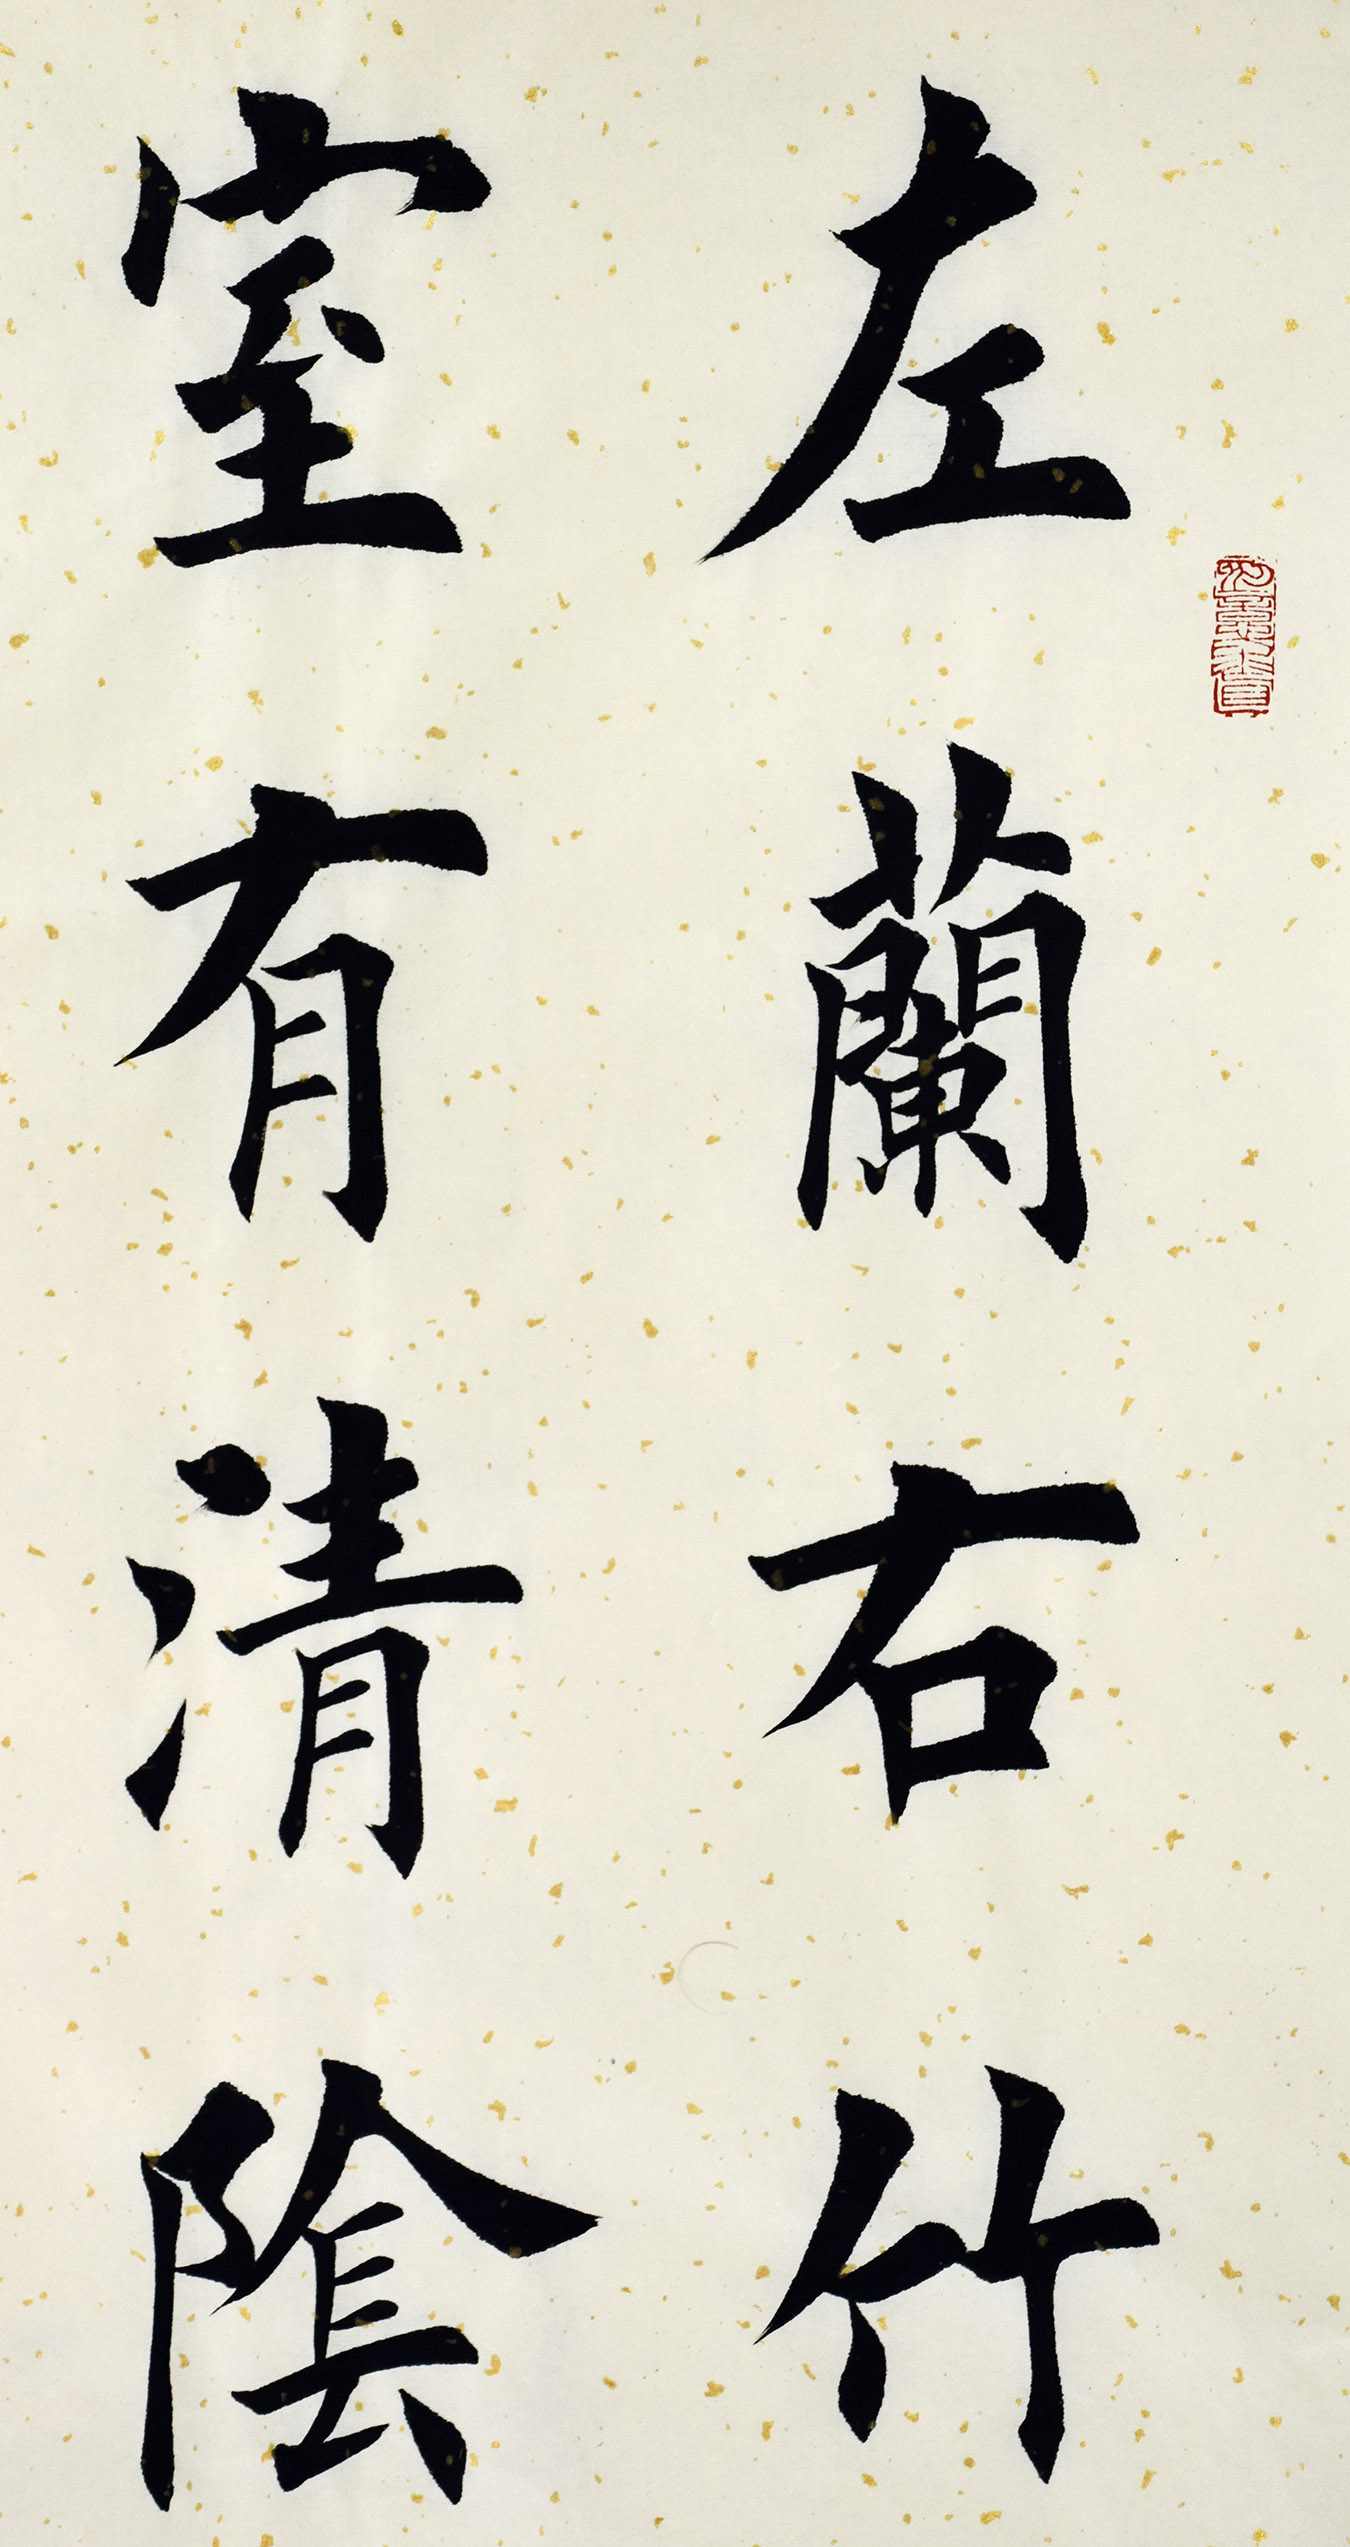 左蘭右竹
室有清陰